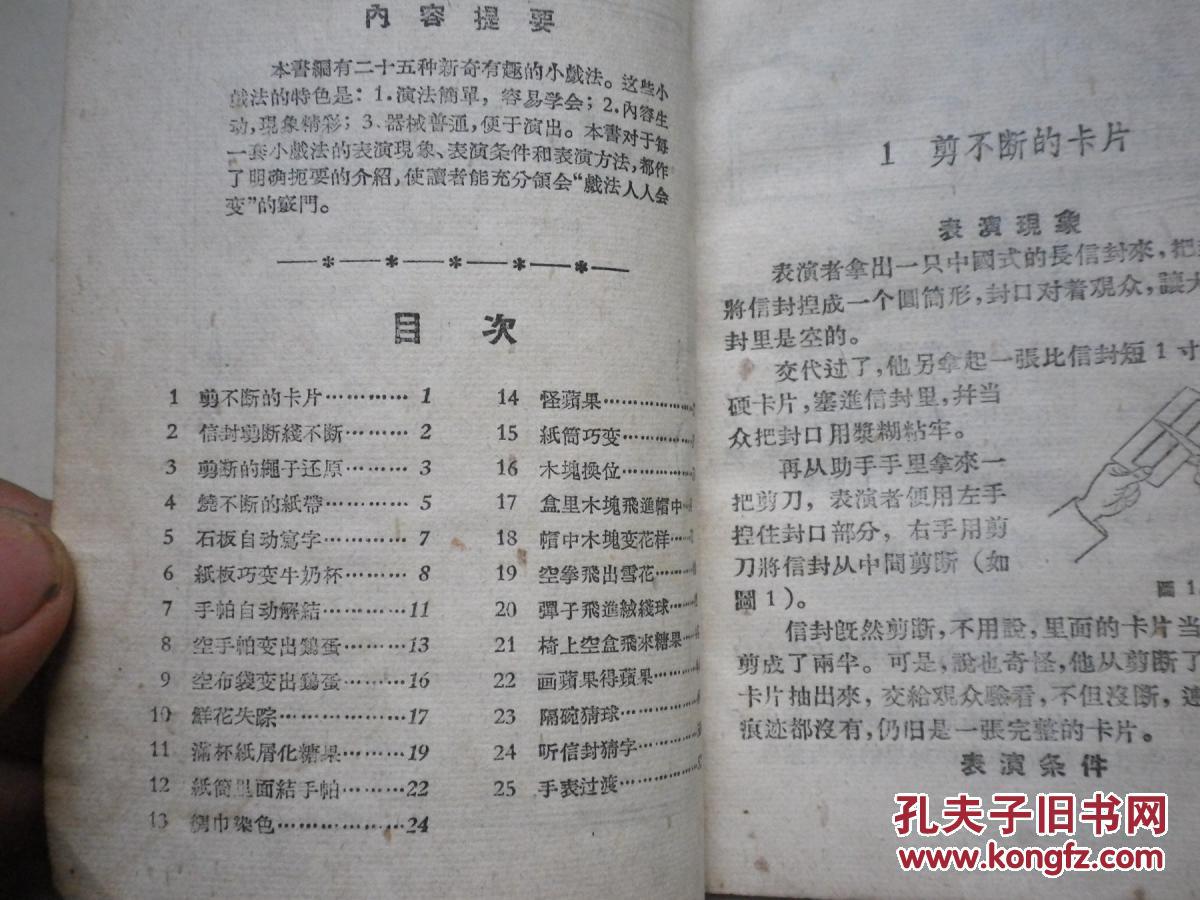 內容提要
本書編有二十五种新奇有趣的小戲法。这些小
戲法的特色是：1.演法簡單，容易学会；2.內容生
动，現象精彩；3.器械普通，便于演出。本書对于每
一套小戲法的表演現象、表演条件和表演方法，都作
了明确扼要的介紹，使讀者能充分領会“戲法人人会
变”的竅門。
目次
1 剪不断的卡片………… 1
2 信封剪断綫不断……… 2
3 剪断的繩子还原……… 3
4 燒不断的紙帶………… 5
5 石板自动寫字………… 7
6 紙板巧变牛奶杯……… 8
7 手帕自动解結…………11
8 空手帕变出鷄蛋………13
9 空布袋变出鷄蛋………16
10 鮮花失踪………………17
11 滿杯紙屑化糖果………19
12 紙筒里面結手帕………22
13 綢巾染色………………24
14 怪蘋果………………
15 紙筒巧变…………
16 木塊換位…………
17 盒里木塊飛進帽中…
18 帽中木塊变花样……
19 空拳飛出雪花………
20 彈子飛進絨綫球……
21 椅上空盒飛來糖果…
22 画蘋果得蘋果………
23 隔碗猜球…………
24 听信封猜字………
25 手表过渡…………
1 剪不断的卡片
表演現象
表演者拿出一只中國式的長信封來，把
將信封揑成一个圓筒形，封口对着观众，讓大
封里是空的。
交代过了，他另拿起一張比信封短1寸
硬卡片，塞進信封里，幷当
众把封口用漿糊粘牢。
再从助手手里拿來一
把剪刀，表演者便用左手
揑住封口部分，右手用剪
刀將信封从中間剪断（如
圖1）。
圖1
信封旣然剪断，不用說，里面的卡片当
剪成了兩半。可是，說也奇怪，他从剪断了
卡片抽出來，交給观众驗看，不但沒断，連
痕迹都沒有，仍旧是一張完整的卡片。
表演条件
孔夫子旧书网
www.kongfz.com